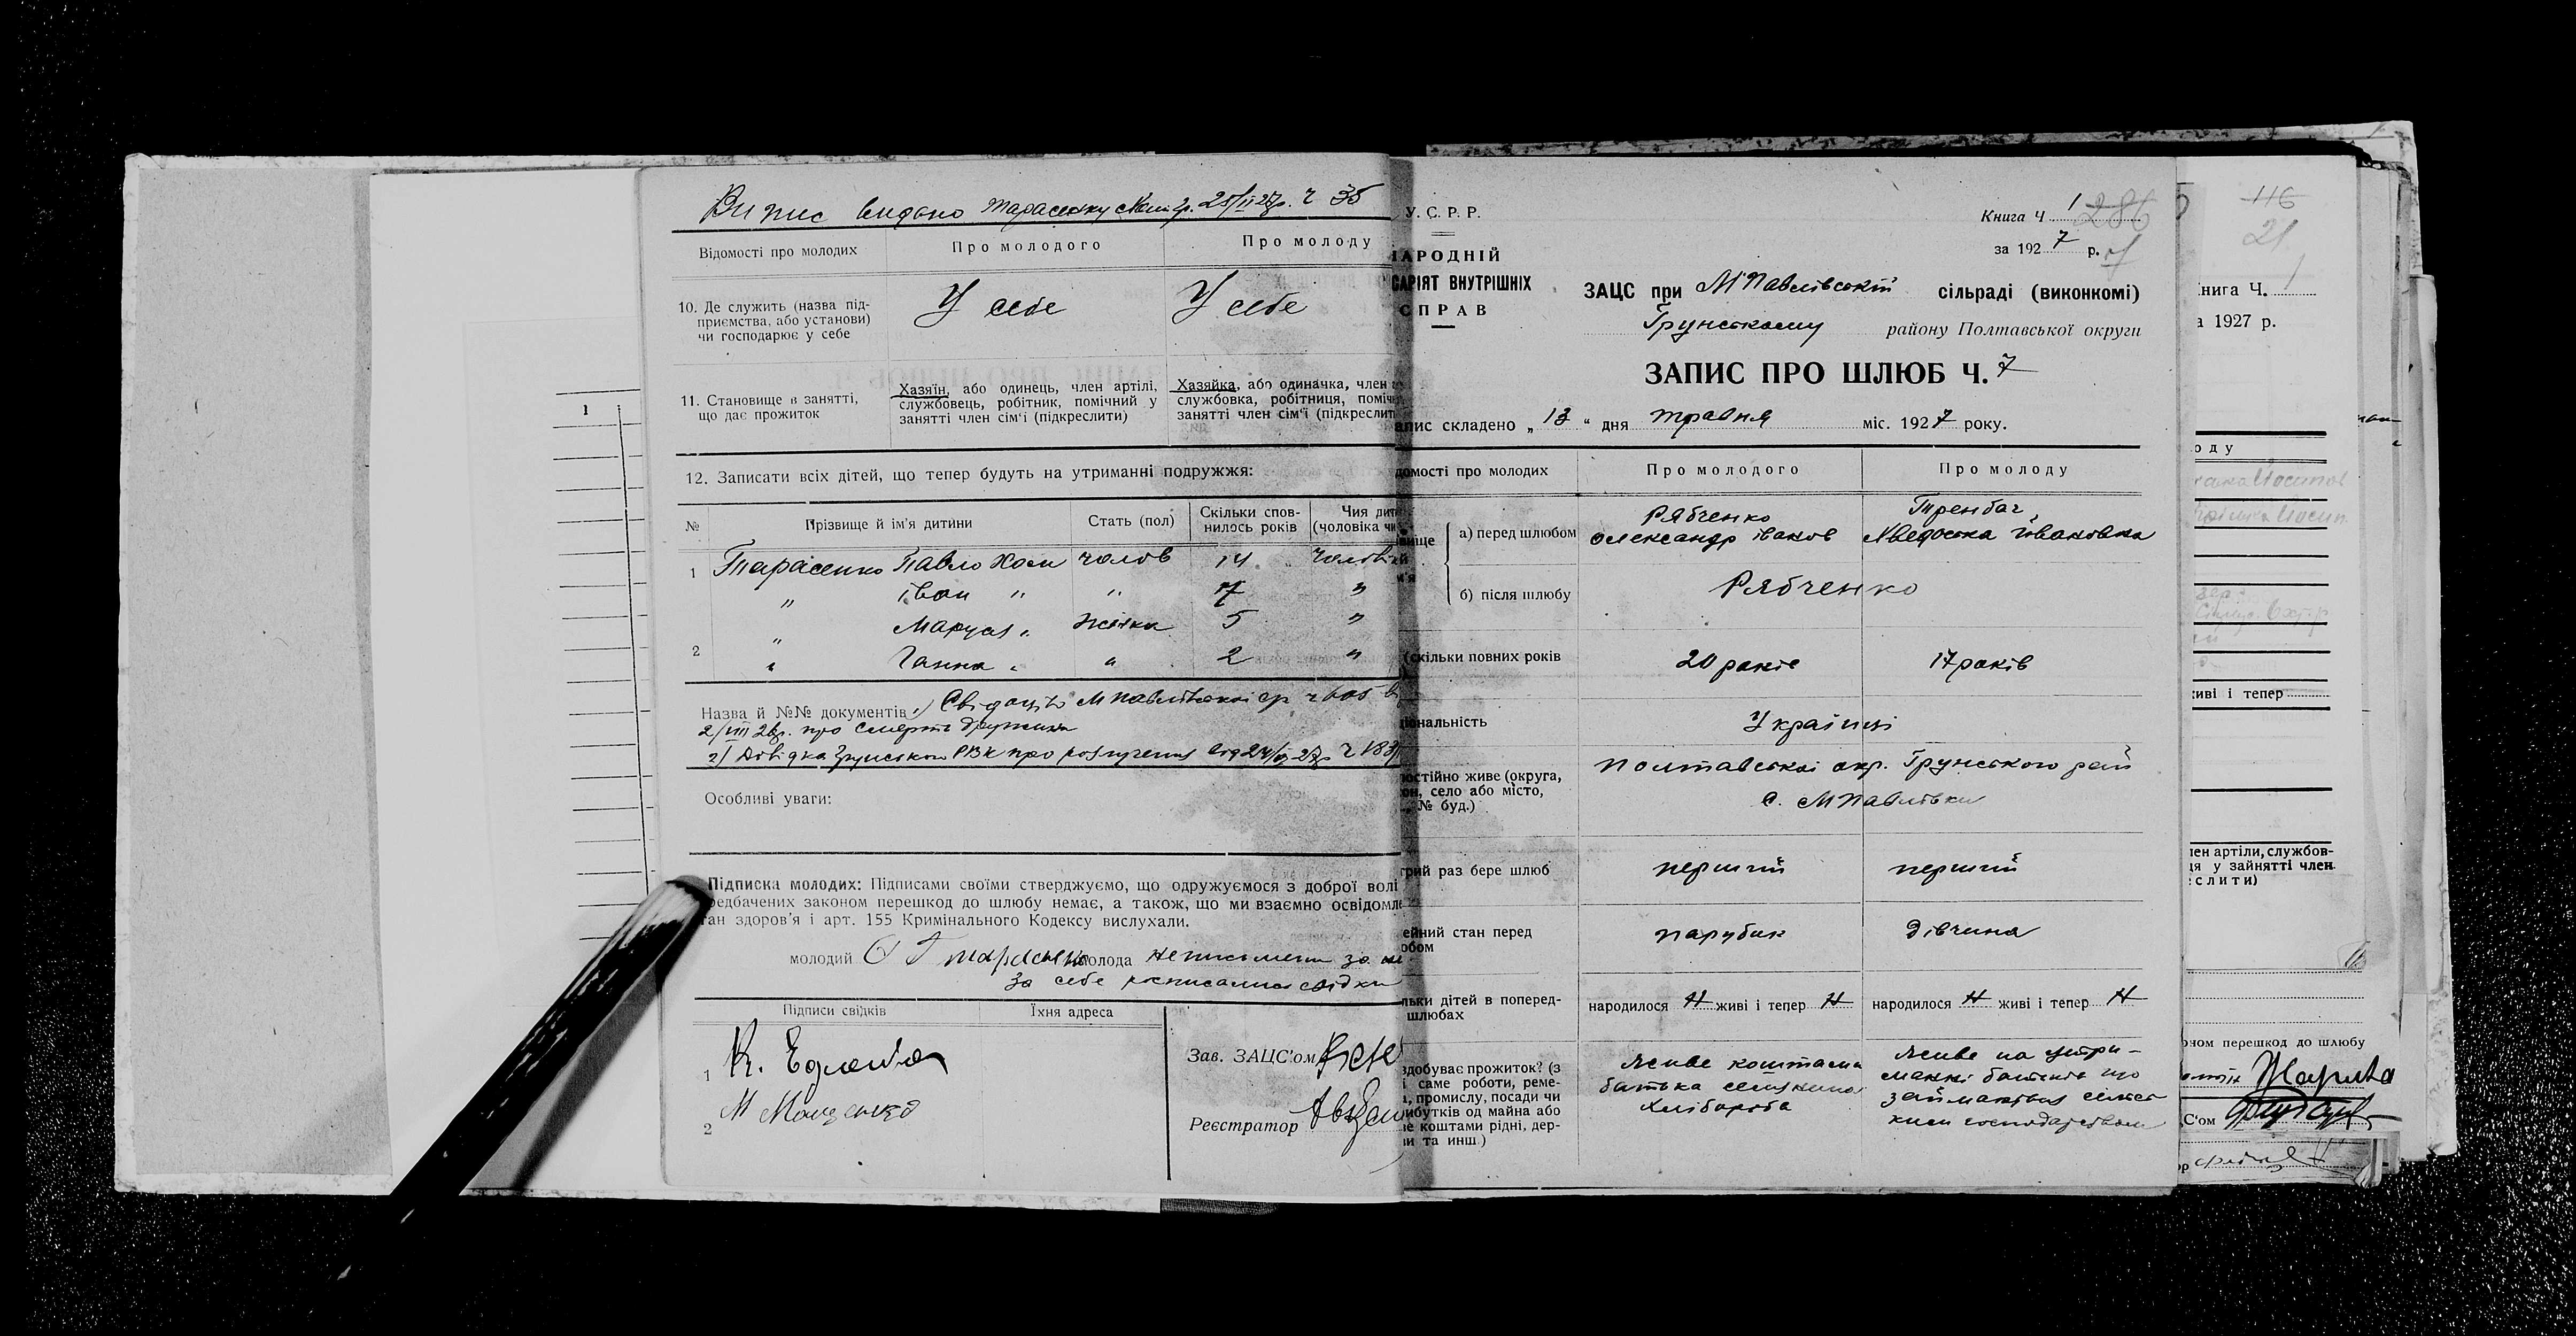 Випис видано Тарасенку 25/II 27р. ч 35
Відомості про молодих
Про молодого
Про молоду
10. Де служить (назва під-
приємства, або установи)
чи господарює у себе
У себе
У себе
11. Становище в занятті,
що дає прожиток
Хазяїн, або одинець, член артілі,
службовець, робітник, помічний у
занятті член сім'ї (підкреслити)
Хазяйка, або одиначка, член
службовка, робітниця, поміч
занятті член сім'ї (підкреслит
12. Записати всіх дітей, що тепер будуть на утриманні подружжя:
№
Прізвище й ім'я дитини
Стать (пол)
Скільки спов-
нилось років
Чия дит
(чоловіка чи
1 Тарасенко Павло Хом чолов 14 чолові
" Іван " " 7 "
" Маруся " жінка 5 "
2 " Ганна " " 2 "
Назва й №№ документів 1) Свідоцтво МПавлівської ср ч 605 в
про смерть дружини
2) Довідка Грунського РВК про розлучення від
Особливі уваги:
Підписка молодих: Підписами своїми стверджуємо, що одружуємося з доброї волі
редбачених законом перешкод до шлюбу немає, а також, що ми взаємно освідомле
тан здоров'я і арт. 155 Кримінального Кодексу вислухали.
молодий Тарасенко молода неписьмени за
за себе росписалися свідки
Підписи свідків
Їхня адреса
1
2
Зав. ЗАЦС'ом
Реєстратор
У.С.Р.Р.
АРОДНІЙ
САРІЯТ ВНУТРІШНІХ
СПРАВ
Книга Ч 1 286
за 1927 р.
ЗАЦС при МПавлівській сільраді (виконкомі)
Грунському району Полтавської округи
ЗАПИС ПРО ШЛЮБ Ч. 7
апис складено „ 13 “ дня травня міс. 1927 року.
домості про молодих
Про молодого
Про молоду
вище
а) перед шлюбом
Рябченко
Олександр Іванов
Тренбач
Явдоська Івановна
б) після шлюбу
Рябченко
(скільки повних років
20 років
17 років
ціональність
Українці
остійно живе (округа,
он, село або місто,
№ буд.)
Полтавської окр. Грунського рай
с. МПавлівки
трий раз бере шлюб
перший
перший
ейний стан перед
юбом
парубик
дівчина
льки дітей в поперед-
шлюбах
народилося Н живі і тепер Н
народилося Н живі і тепер Н
здобуває прожиток? (з
і саме роботи, реме-
, промислу, посади чи
ибутків од майна або
не коштами рідні, дер-
и та инш.)
Живе коштами
батька селянина
хлібороба
Живе на утри-
манні батьків що
займаються сільсь
ким господарством
116
21
нига Ч. 1
а 1927 р.
оду
живі і тепер
лен артіли, службов-
ця у зайнятті член.
еслити)
оном перешкод до шлюбу
С'ом
1